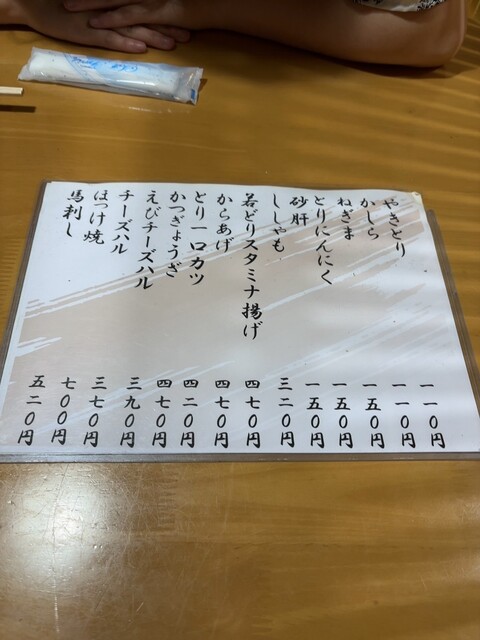 やきとり 一一0円
かしら 一一0円
ねぎま 一五0円
とりにんにく 一五0円
砂肝 一五0円
ししゃも 三二0円
若どりスタミナ揚げ 四七0円
からあげ 四七0円
とり一口カツ 四二0円
かつぎょうざ 四七0円
えびチーズハル 三九0円
チーズハル 三七0円
ほっけ焼 七00円
馬刺し 五二0円